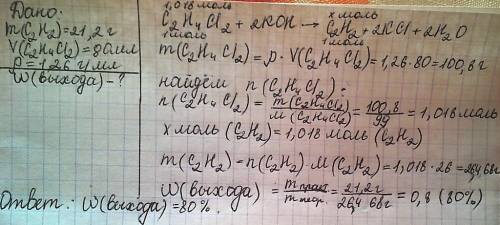 Дано:
m(C₂H₂)=21,2г
V(C₂H₄Cl₂)=80мл
ρ=1,26 г/мл
W(выхода)-?
1,018 моль х моль
C₂H₄Cl₂ + 2KOH → C₂H₂+2KCl+2H₂O
1моль 1моль
m(C₂H₄Cl₂)=ρ·V(C₂H₄Cl₂)=1,26·80=100,8г
найдём n(C₂H₄Cl₂):
n(C₂H₄Cl₂)=m(C₂H₄Cl₂)/M(C₂H₄Cl₂)=100,8/99=1,018моль
х моль(C₂H₂)=1,018моль(C₂H₂)
m(C₂H₂)=n(C₂H₂)·M(C₂H₂)=1,018·26=26,468г
W(выхода)=m практ./m теор.=21,2г/26,468г=0,8(80%)
Ответ: W(выхода)=80%.